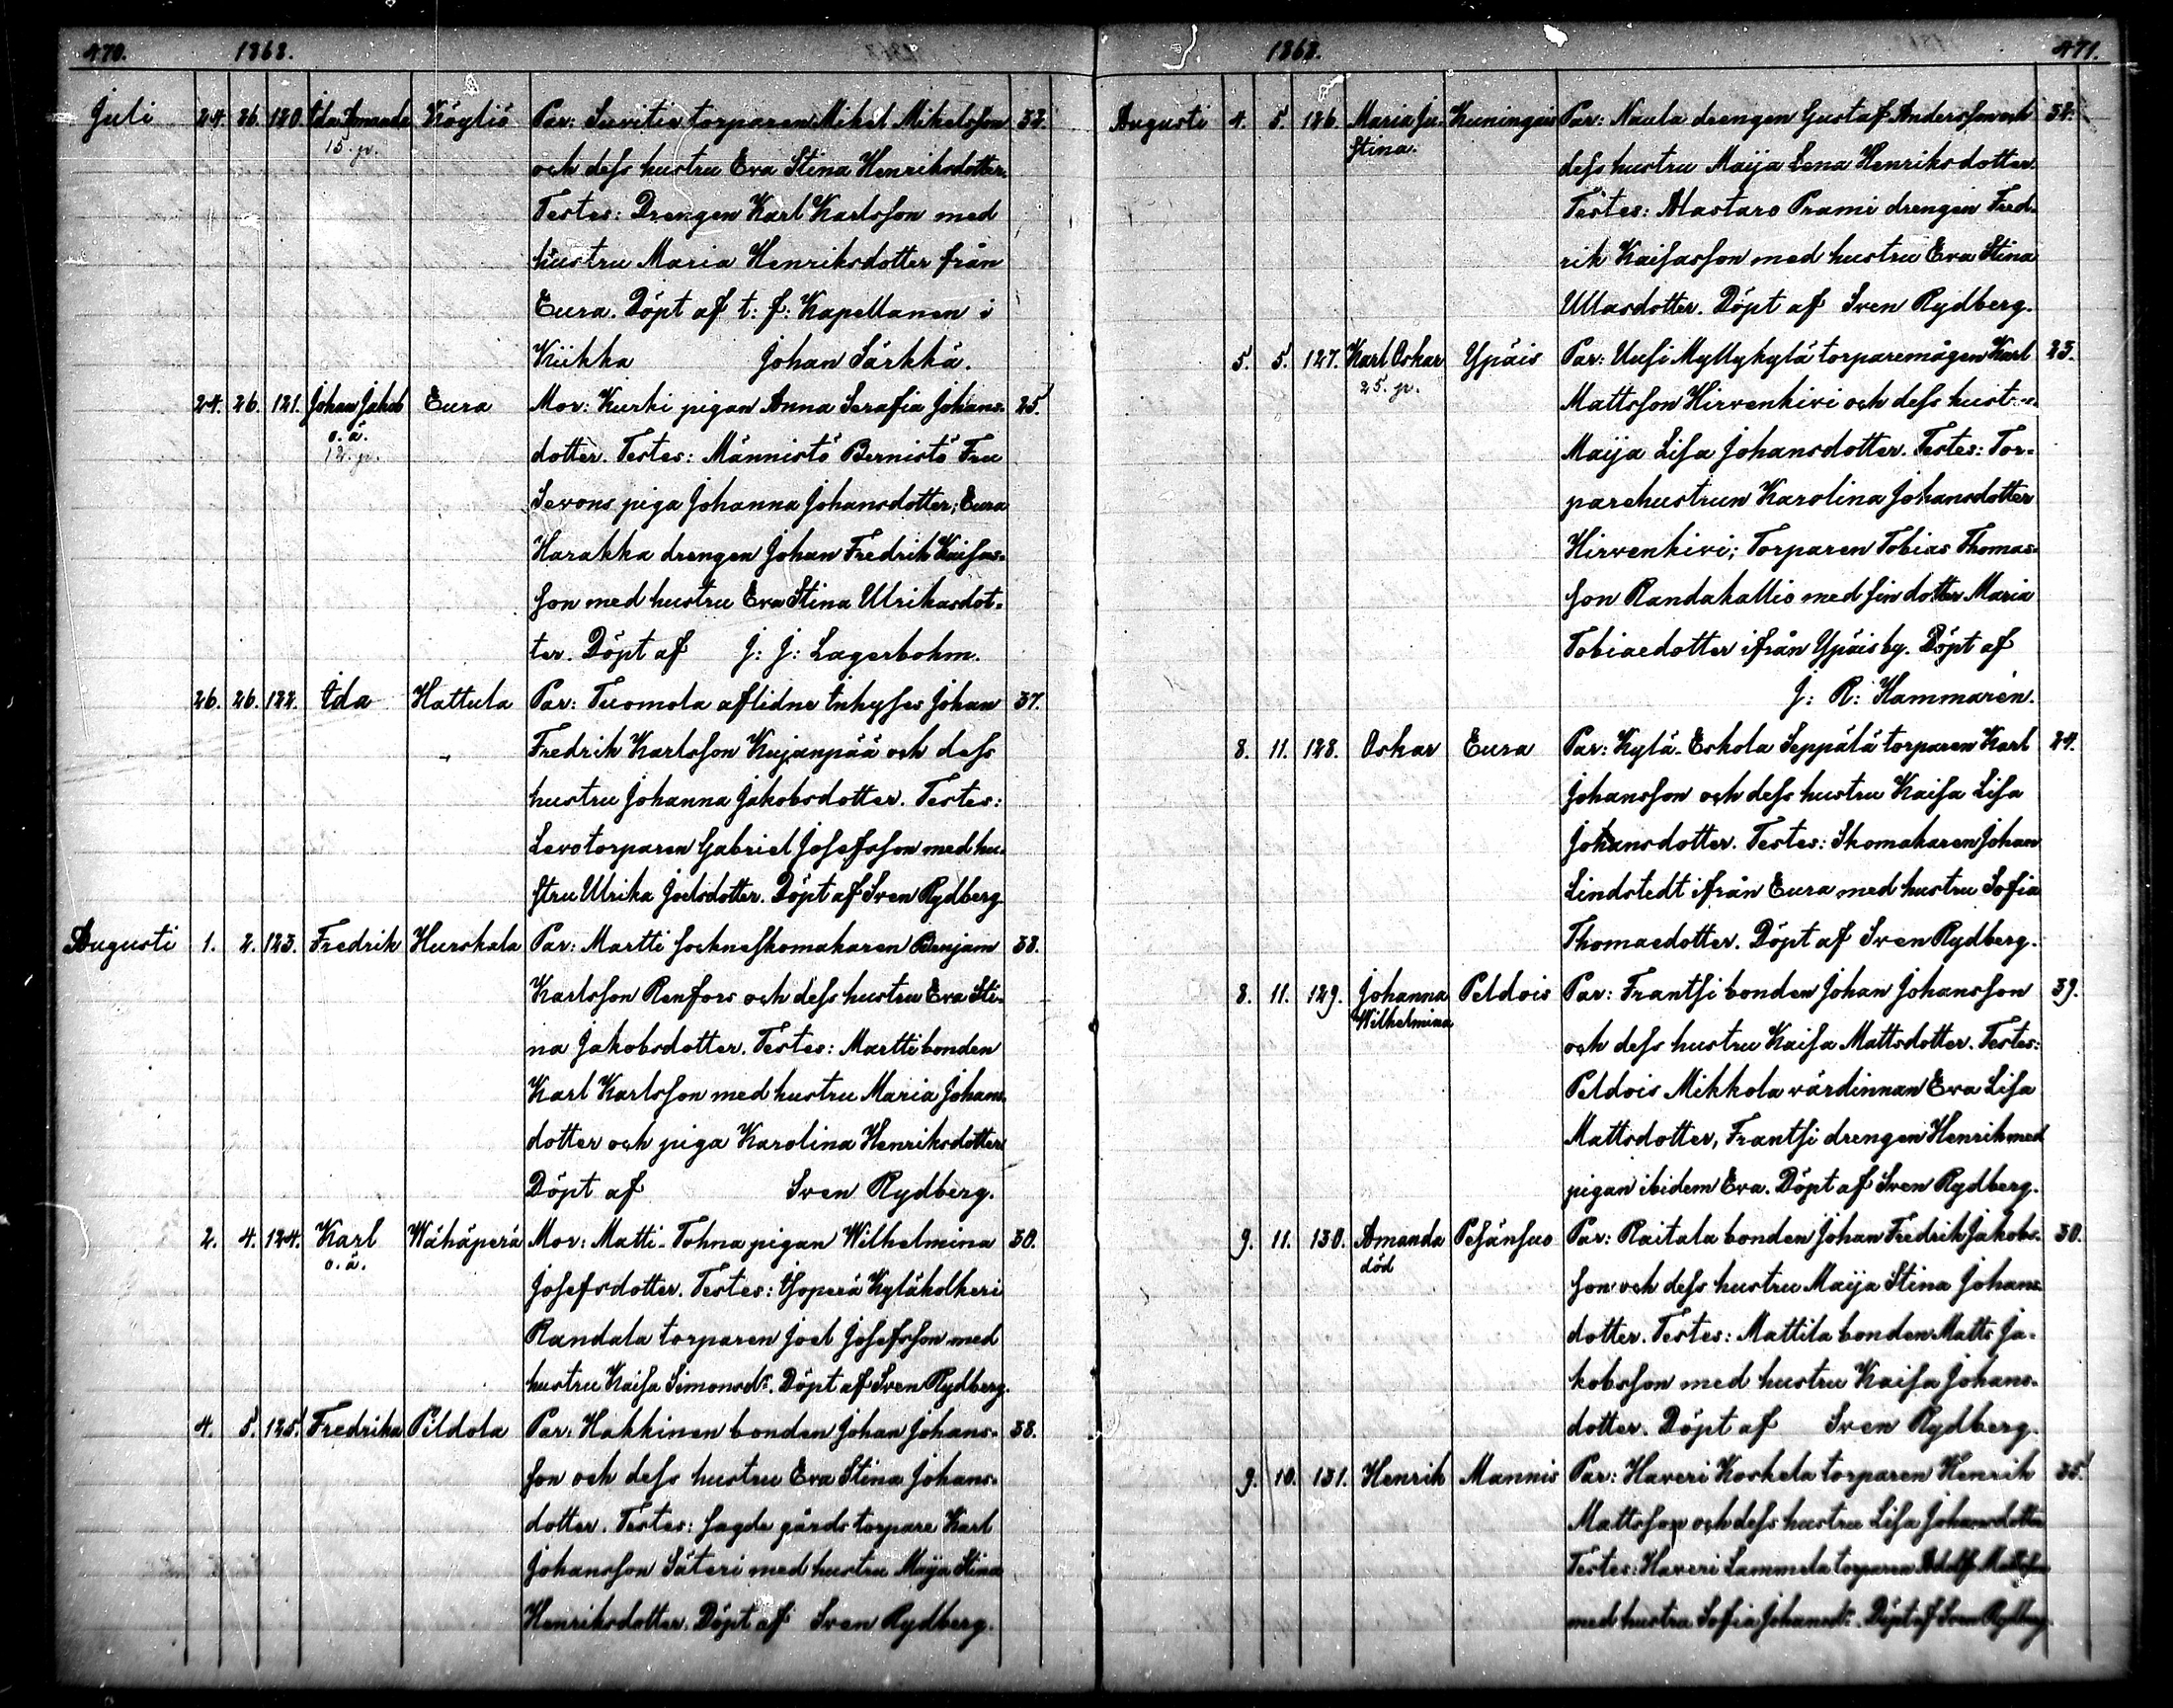 470. 1868.
Juli 24. 26. 120. Ida Amanda Köyliö Par: Suvitie torparen Mikel Mikelsson 32.
15. p. och dess hustru Eva Stina Henriksdotter.
Testes: Drengen Karl Karlsson med
hustru Maria Henriksdotter från
Eura. Döpt af t: f: Kapellanen i
Kiikka Johan Särkkä.
24. 26. 121. Johan Jakob Eura Mor: Kurki pigan Anna Serafia Johans- 25.
o. ä. dotter. Testes: Männistö Bernistö Fru
12. p. Sevons piga Johanna Johansdotter; Eura
Harakka drengen Johan Fredrik Kaifas-
son med hustru Eva Stina Ulrikasdot-
ter. Döpt af J: J: Lagerbohm.
26. 26. 122. Ida Hattula Par: Tuomola aflidne Inhyses Johan 37.
Fredrik Karlsson Kujanpää och dess
hustru Johanna Jakobsdotter. Testes:
Levo torparen Gabriel Josefsson med hu-
stru Ulrika Joelsdotter. Döpt af Sven Rydberg.
Augusti 1. 2. 123. Fredrik Hurskala Par: Martti socknesskomakaren Benjam 38.
Karlsson Renfors och dess hustru Eva Sti-
na Jakobsdotter. Testes: Martti bonden
Karl Karlsson med hustru Maria Johans-
dotter och piga Karolina Henriksdotter.
Döpt af Sven Rydberg.
2. 4. 124. Karl Wähäperä Mor: Matti-Tohna pigan Wilhelmina 30.
o. ä. Josefsdotter. Testes: Isoperä Kyläkolkeri
Randala torparen Joel Josefsson med
hustru Kaisa Simonsdr. Döpt af Sven Rydberg.
4. 5. 125. Fredrika Pildola Par: Hakkinen bonden Johan Johans- 38.
son och dess hustru Eva Stina Johans-
dotter. Testes: sagde gårds torpare Karl
Johansson Säteri med hustru Maija Stina
Henriksdotter. Döpt af Sven Rydberg.
1868. 471.
Augusti 4. 5. 126. Maria Ju- Kuningais Par: Naula drengen Gustaf Andersson och 32.
stina. dess hustru Maija Lena Henriksdotter.
Testes: Alastaro Prami drengen Fred-
rik Kaifasson med hustru Eva Stina
Ullasdotter. Döpt af Sven Rydberg.
5. 5. 127. Karl Oskar Ypäis Par: Uusi Myllykylä torparemågen Karl 23.
25. p. Mattsson Hirvenkivi och dess hust-
Maija Lisa Johansdotter. Testes: Tor-
parehustrun Karolina Johansdotter
Hirvenkivi; Torparen Tobias Thomas-
son Randakallio med sin dotter Maria
Tobiaedotter ifrån Ypäis by. Döpt af
J: R: Hammarén.
8. 11. 128. Oskar Eura Par: Kylä-Eskola Seppälä torparen Karl 24.
Johansson och dess hustru Kaisa Lisa
Johansdotter. Testes: Skomakaren Johan
Lindstedt ifrån Eura med hustru Sofia
Thomaedotter. Döpt af Sven Rydberg.
8. 11. 129. Johanna Peldois Par: Frantsi bonden Johan Johansson 39.
Wilhelmina och dess hustru Kaisa Mattsdotter. Testes:
Peldois Mikkola värdinnan Eva Lisa
Mattsdotter, Frantsi drengen Henrik med
pigan ibidem Eva. Döpt af Sven Rydberg.
9. 11. 130. Amanda Pesänsuo Par: Raitala bonden Johan Fredrik Jakobs- 30.
död son och dess hustru Maija Stina Johans-
dotter. Testes: Mattila bonden Matts Ja-
kobsson med hustru Kaisa Johans-
dotter. Döpt af Sven Rydberg.
9. 10. 131. Henrik Mannis Par: Haveri Koskela torparen Henrik 35.
Mattsson och dess hustru Lisa Johansdotter
Testes: Haveri Lammela torparen Adolf Mattsson
med hustru Sofia Johansdr. Döpt af Sven Rydberg.